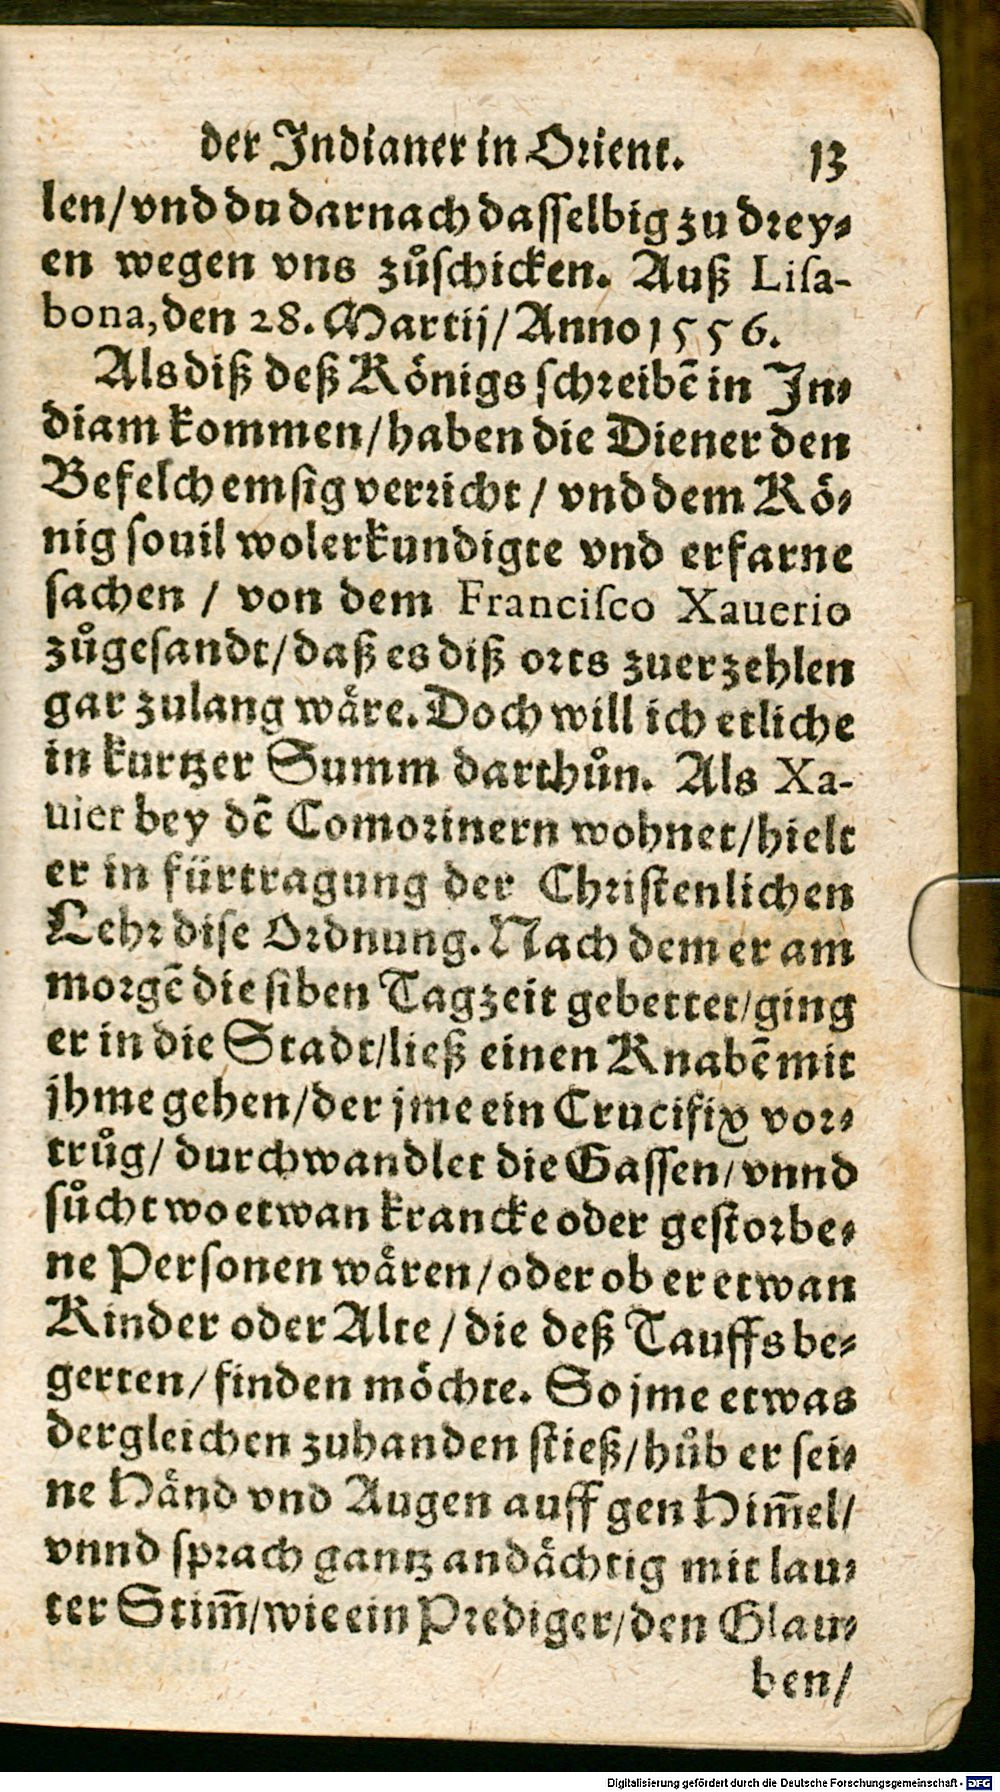 der Indianer in Orient. 13
len/vnd du darnach dasselbig zu drey-
en wegen vns zůschicken. Auß Lisa-
bona, den 28. Martij/Anno 1556.
Als diß deß Königs schreibē in In-
diam kommen/haben die Diener den
Befelch emsig verricht/vnd dem Kö-
nig souil wolerkundigte vnd erfarne
sachen/von dem Francisco Xauerio
zůgesandt/daß es diß orts zuerzehlen
gar zulang wäre. Doch will ich etliche
in kurtzer Summ darthůn. Als Xa-
uier bey dē Comorinern wohnet/hielt
er in fürtragung der Christenlichen
Lehr dise Ordnung. Nach dem er am
morgē die siben Tagzeit gebettet/ging
er in die Stadt/ließ einen Knabē mit
jhme gehen/der jme ein Crucifix vor-
trůg/durchwandlet die Gassen/vnnd
sůcht wo etwan krancke oder gestorbe-
ne Personen wären/oder ob er etwan
Kinder oder Alte/die deß Tauffs be-
gerten/finden möchte. So jme etwas
dergleichen zuhanden stieß/hůb er sei-
ne Händ vnd Augen auff gen Him̄el/
vnnd sprach gantz andächtig mit lau-
ter Stim̄/wie ein Prediger/den Glau-
ben/
Digitalisierung gefördert durch die Deutsche Forschungsgemeinschaft - DFG